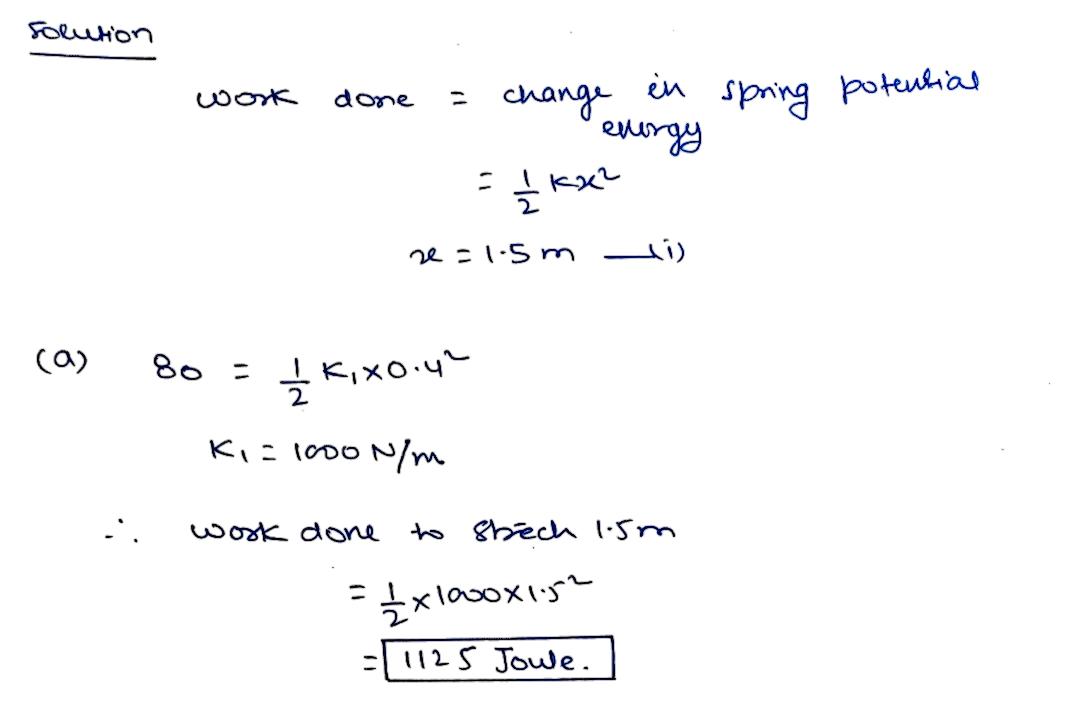 Solution
work done = change in spring potential
energy
= 1/2 kx²
x = 1.5 m —(i)
(a) 80 = 1/2 K₁ × 0.4²
K₁ = 1000 N/m
∴ work done to strech 1.5m
= 1/2 × 1000 × 1.5²
= 1125 Joule.